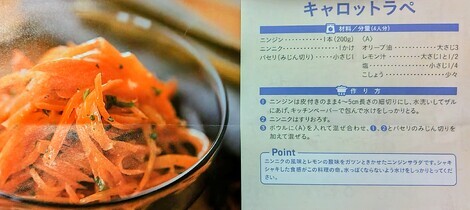 キャロットラペ
材料/分量(4人分)
ニンジン………1本(200g)
ニンニク………1かけ
パセリ(みじん切り)……小さじ1
〈A〉
オリーブ油………大さじ3
レモン汁………大さじ1/2
塩………小さじ1/4
こしょう………少々
作り方
❶ ニンジンは皮付きのまま4〜5cm長さの細切りにし、水洗いしてザル
にあげ、キッチンペーパーで包んで水けをしっかりとる。
❷ ニンニクはすりおろす。
❸ ボウルに〈A〉を入れて混ぜ合わせ、❶、❷とパセリのみじん切りを
加えて混ぜる。
Point
ニンニクの風味とレモンの酸味をガツンときかせたニンジンサラダです。シャキ
シャキした食感がこの料理の命。水っぽくならないよう水けをしっかりとってくだ
さい。